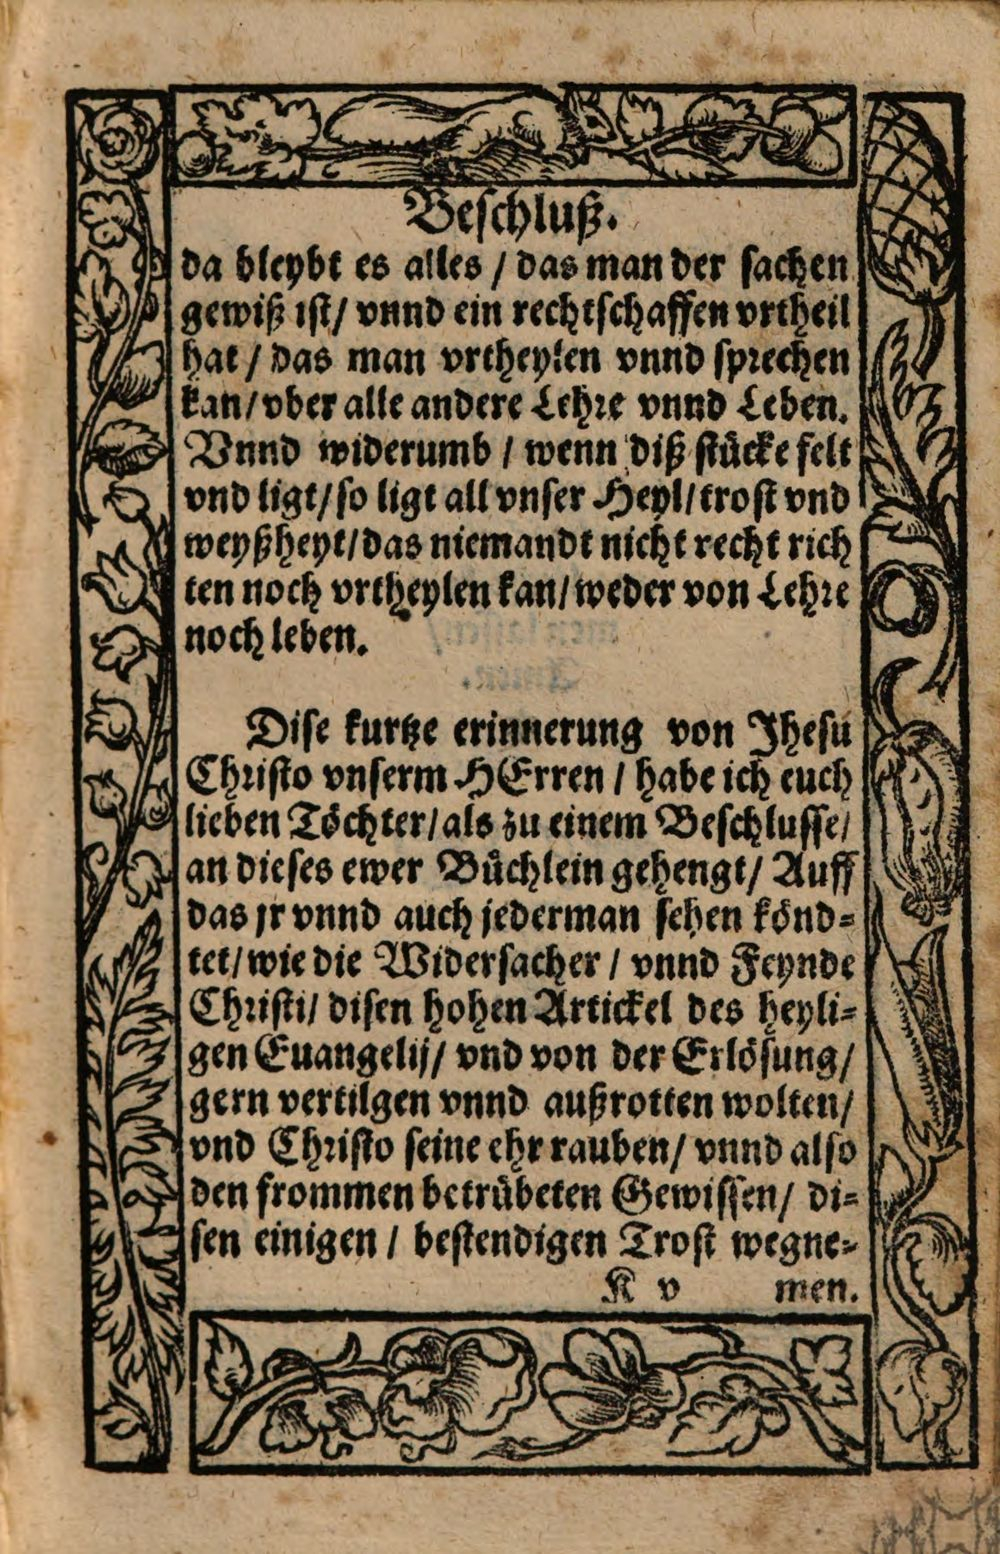 Beschluß.
da bleybt es alles / das man der sachen
gewiß ist / vnnd ein rechtschaffen vrtheil
hat / das man vrtheylen vnnd sprechen
kan / vber alle andere Lehre vnnd Leben.
Vnnd widerumb / wenn diß stücke felt
vnd ligt / so ligt all vnser Heyl / trost vnd
weyßheyt / das niemandt nicht recht rich
ten noch vrtheylen kan / weder von Lehre
noch leben.
Dise kurtze erinnerung von Jhesu
Christo vnserm HErren / habe ich euch
lieben Töchter / als zu einem Beschlusse /
an dieses ewer Büchlein gehengt / Auff
das jr vnnd auch jederman sehen könd=
tet / wie die Widersacher / vnnd Feynde
Christi / disen hohen Artickel des heyli=
gen Euangelij / vnd von der Erlösung /
gern vertilgen vnnd außrotten wolten /
vnd Christo seine ehr rauben / vnnd also
den frommen betrübeten Gewissen / di=
sen einigen / bestendigen Trost wegne=
K v men.